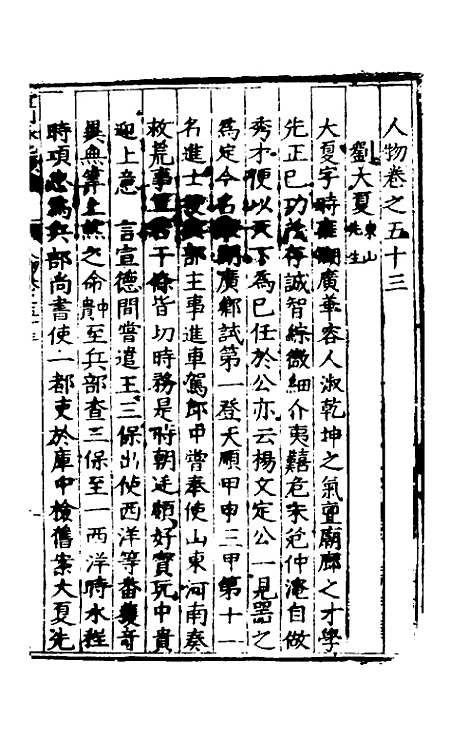 人物卷之五十三
劉大夏 東山先生
大夏字時雍湖廣華容人淑乾坤之氣宜廟廊之才學
先正己功存誠智綜微細介夷囏危宋范仲淹自做
秀才便以天下為己任於公亦云楊文定公一見器之
為定今名湖廣鄉試第一登天順甲申三甲第十一
名進士授兵部主事進車駕郎中嘗奉使山東河南奏
救荒事宜若干條皆切時務是時朝廷頗好寶玩中貴
迎上意 言宣德間嘗遣王三保出使西洋等番獲奇
異無筭上然之命中貴至兵部查三保至 西洋時水程
時項忠為兵部尚書使一都吏於庫中檢舊案大夏先